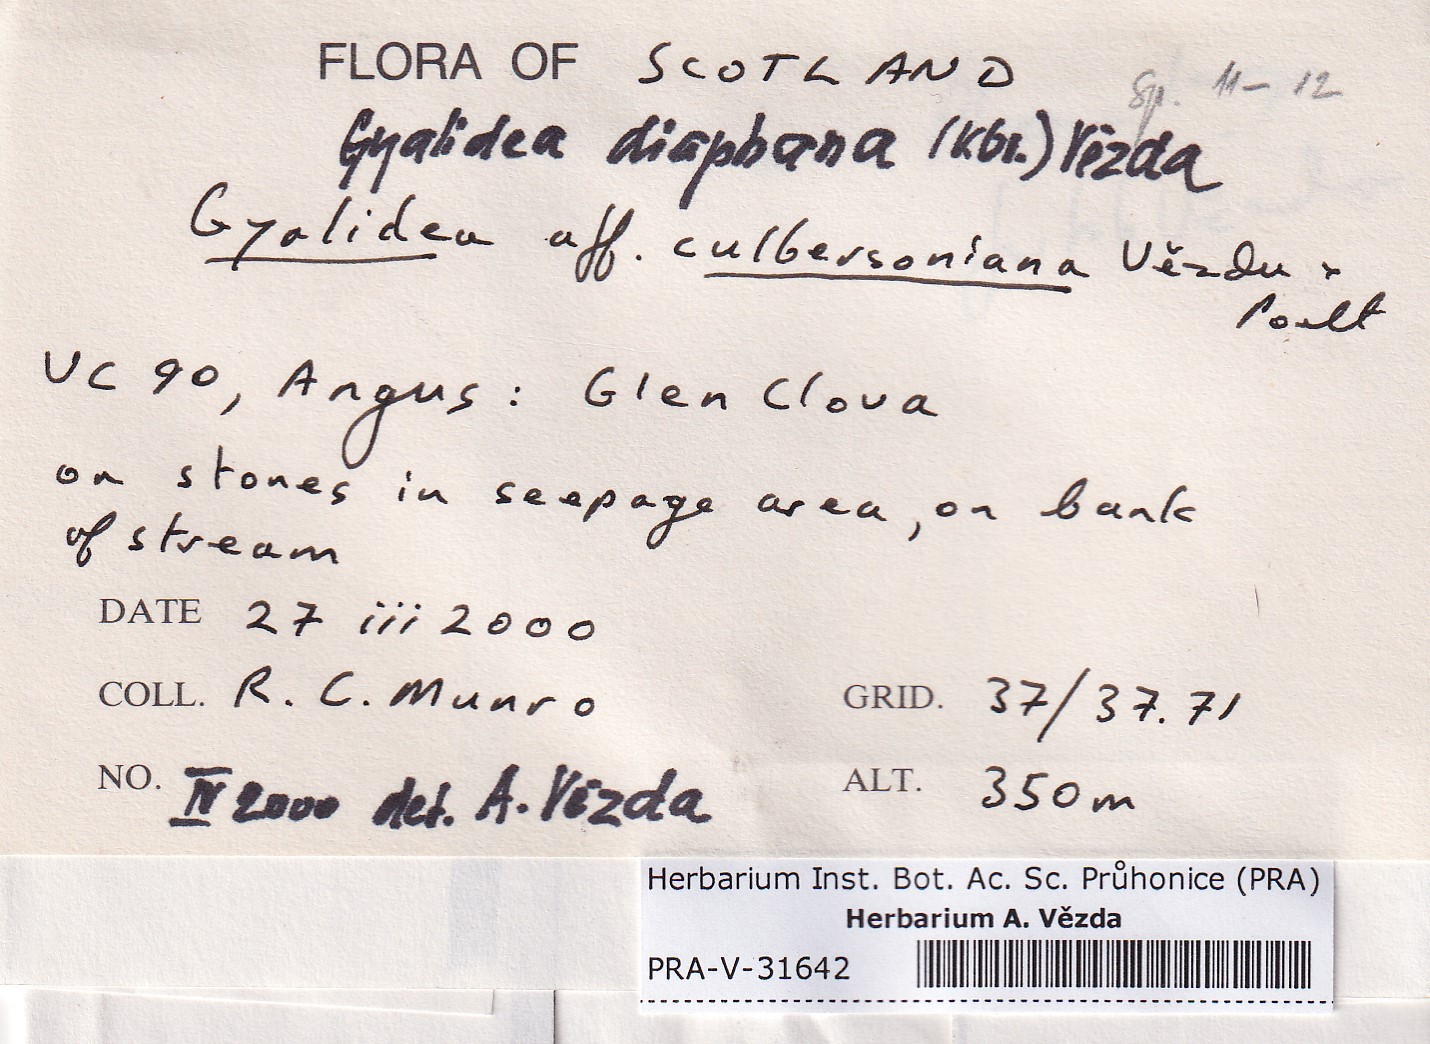 FLORA OF SCOTLAND
Sp. 11-12
Gyalidea diaphana (Kbr.) Vězda
Gyalidea aff. culbersoniana Vězda &
Poelt
VC 90, Angus: Glen Clova
on stones in seepage area, on bank
of stream
DATE 27 iii 2000
COLL. R. C. Munro
GRID. 37/37.71
NO. IV 2000 det. A. Vězda
ALT. 350m
Herbarium Inst. Bot. Ac. Sc. Průhonice (PRA)
Herbarium A. Vězda
PRA-V-31642